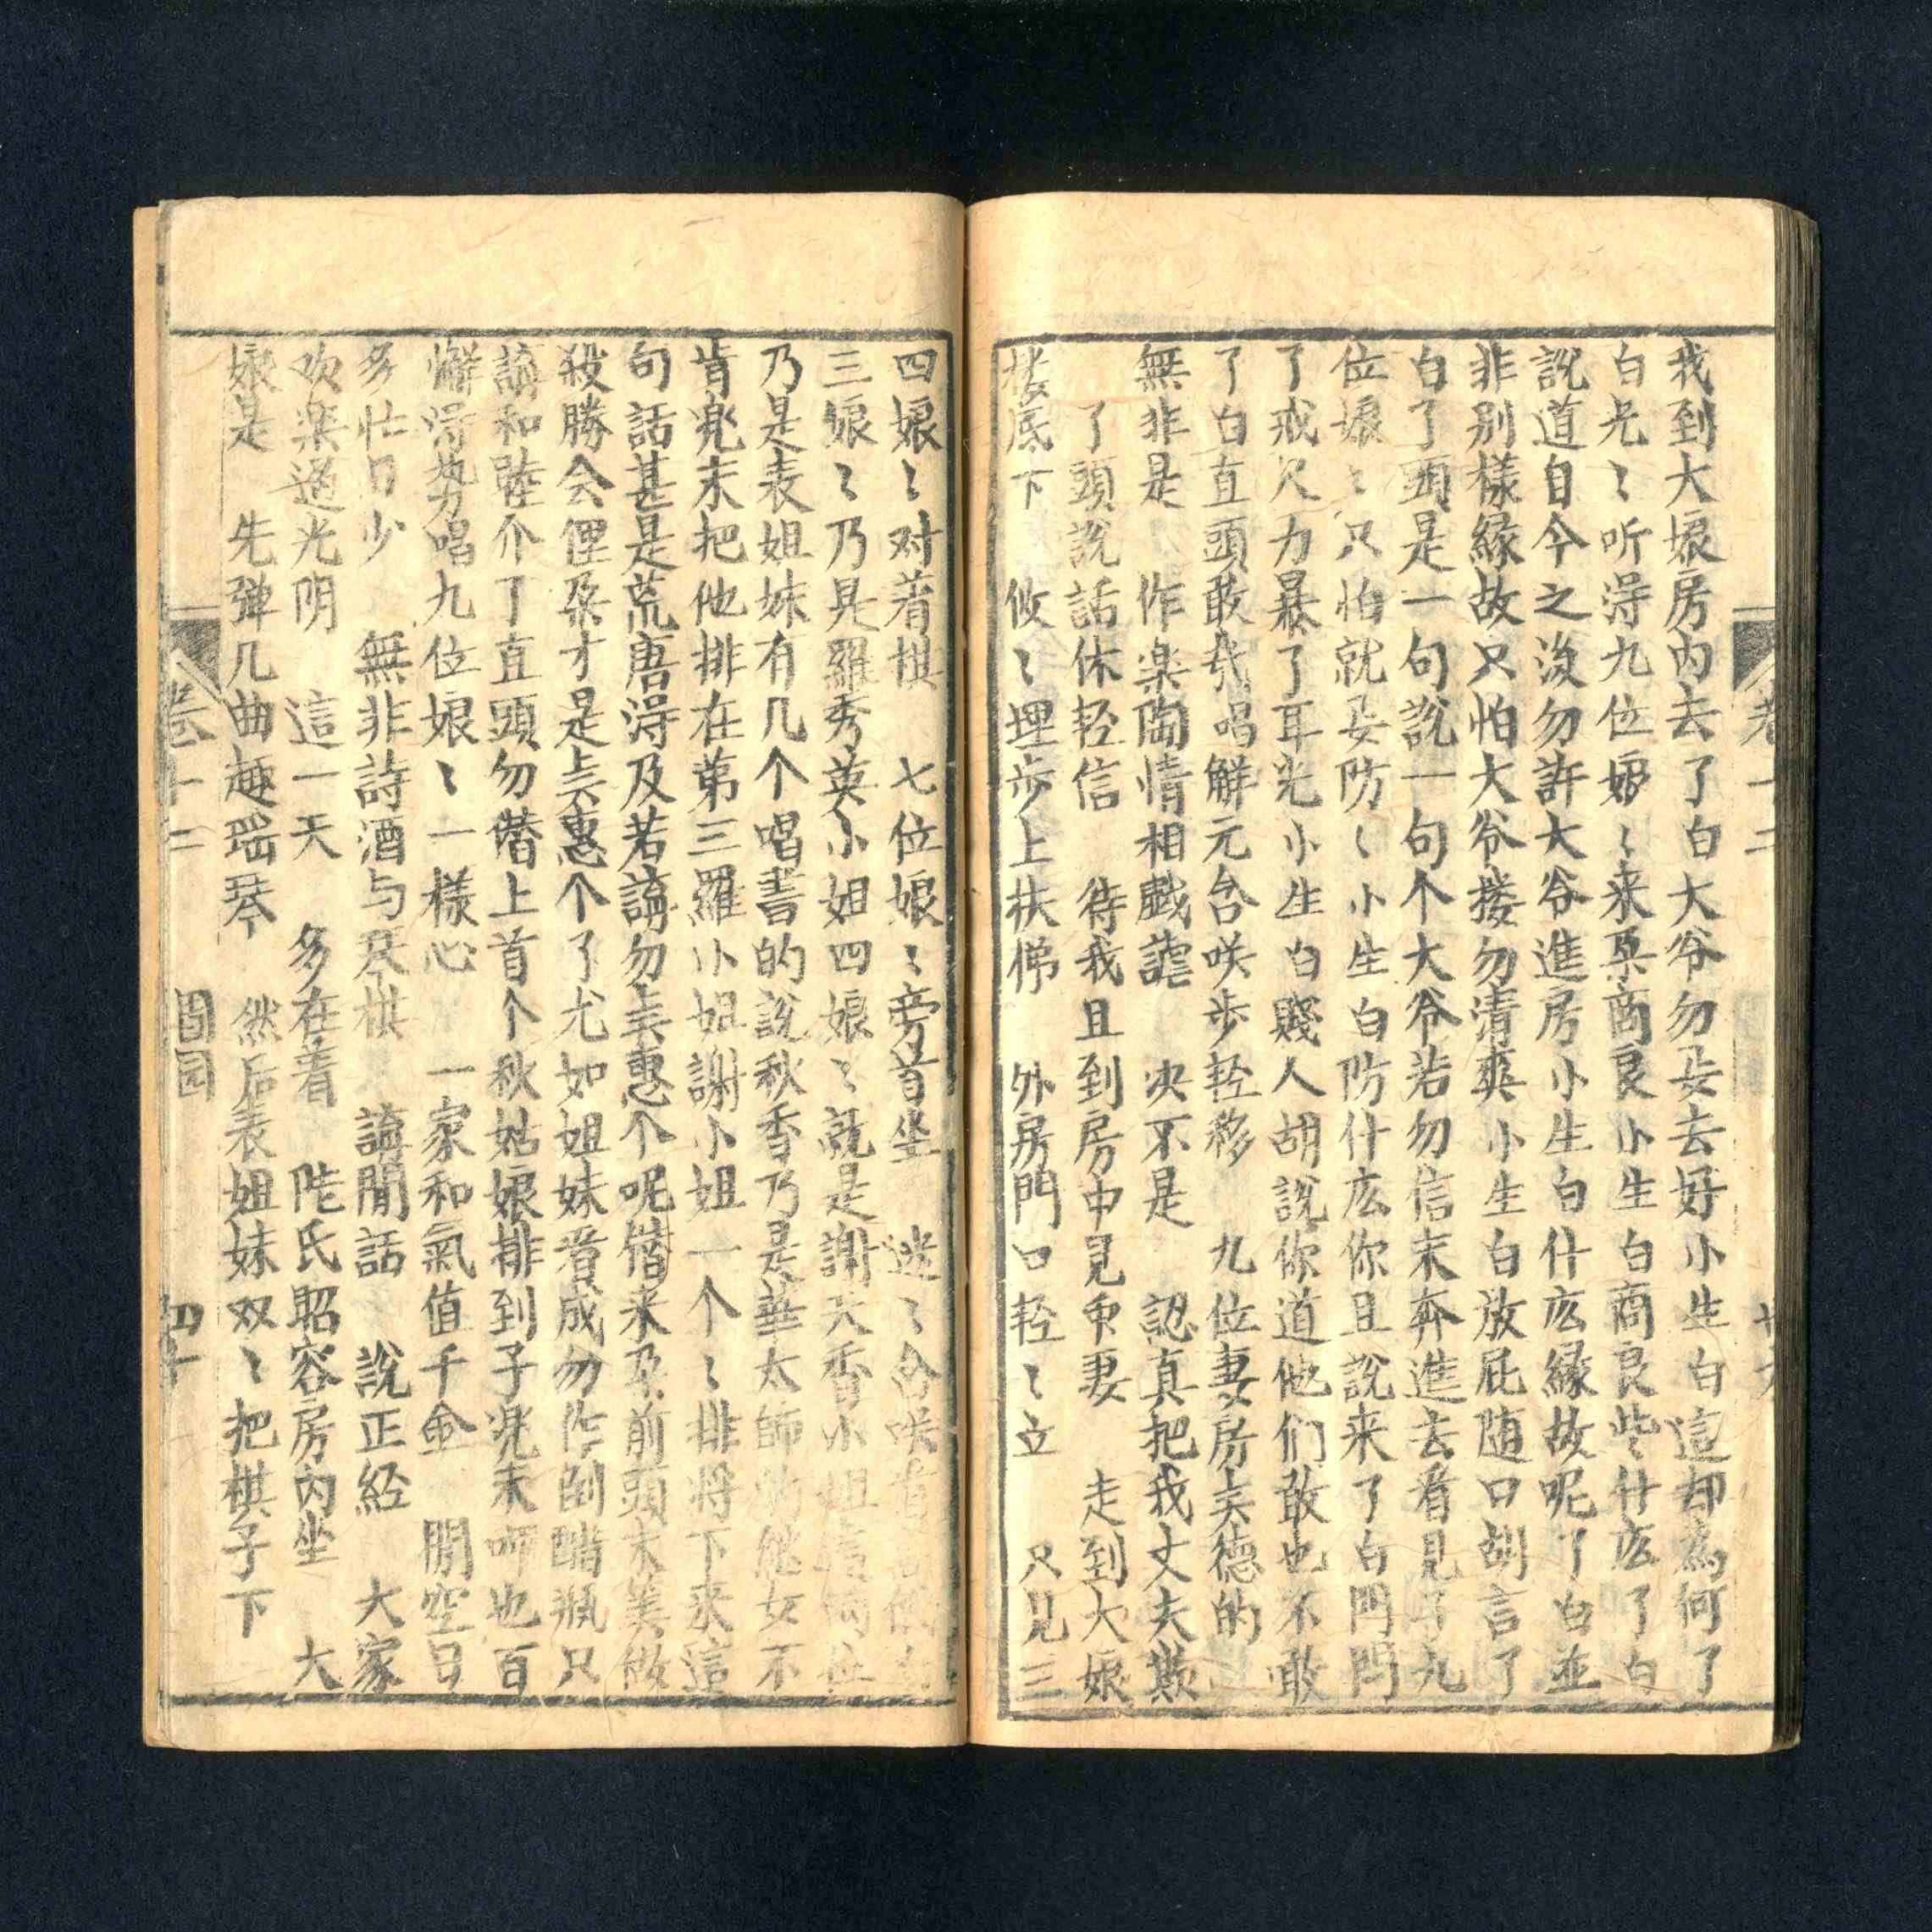 卷十二
我到大娘房內去了白大爷勿妥去好小生白這却為何了
白光〻听淂九位娘〻来栗商良小生白商良些什庅了白
說道自今之後勿許大爷進房小生白什庅緣故呢了白並
非別樣緣故只怕大爷搂勿清爽小生白放屁随口胡言了
白了頭是一句說一句个大爷若勿信末奔進去看見子九
位娘〻只怕就妥防〻小生白防什庅你且說来了白門閂
了戒尺力暴了耳光小生白賤人胡說你道他们敢也不敢
了白直頭敢我唱解元台咲步轻移 九位妻房美德的
無非是 作楽陶情相戯謔 决不是 認真把我丈夫欺
了頭說話休轻信 待我且到房中見重妻 走到大娘
楼底下 攸〻埋步上扶梯 外房門口轻〻立 只見三
四娘〻对着棋 七位娘〻旁首坐 迷〻含咲
三娘〻乃是羅秀英小姐四娘〻就是謝天香小姐這
乃是表姐妹有几个唱書的說秋香乃是華太師的使女不
肯兠末把他排在第三羅小姐謝小姐一个〻排将下来這
句話甚是荒唐淂及若論勿賢惠个呢僭来朶前頭末美做
殺勝会俚朶才是賢惠个了尤如姐妹眷成勿作倒醋瓶只
論和睦个了直頭勿僭上首个秋姑娘排到子兠末哼也百
懈淂势唱九位娘〻一樣心 一家和氣值千金 閒空日
多忙日少 無非詩酒与琴棋 論閒話 說正经 大家
欢楽過光阴 這一天 多在着 陸氏昭容房內坐 大
娘是 先弹几曲趣瑶琴 然后表姐妹双〻把棋子下
卷十二 四十